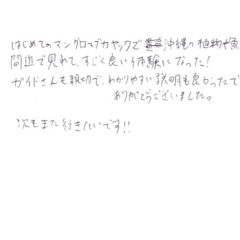 はじめてのマングローブカヤックで沖縄の植物や魚
間近で見れて、すごく良い体験になった!
ガイドさんも親切で、わかりやすい説明も良かったで
ありがとうございました。
次もまた行きたいです!!